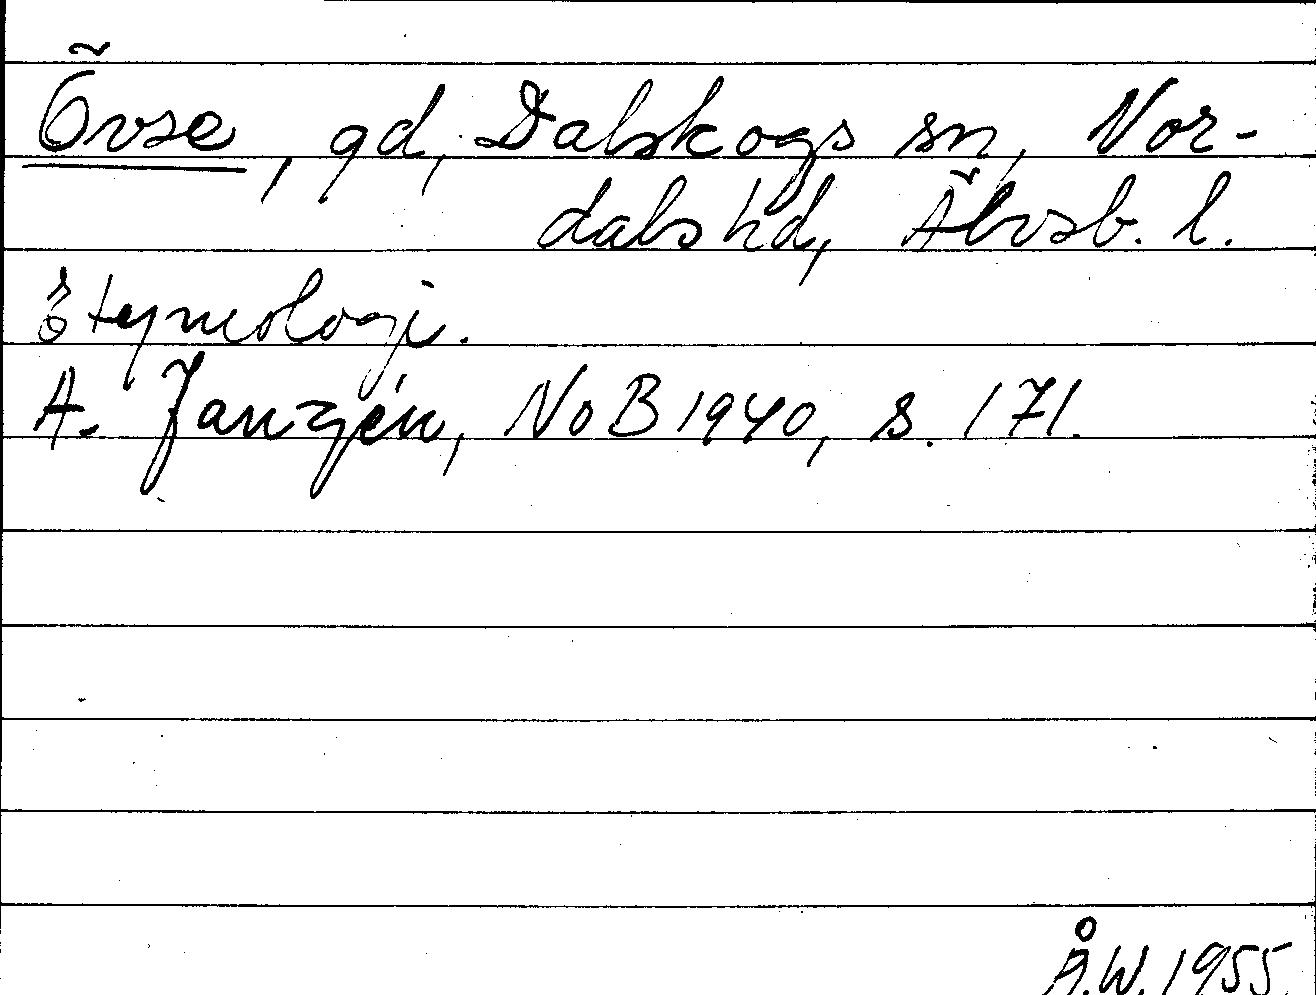 Övse, gd, Dalskogs sn, Nor-
dals hd, Älvsb. l.
Etymologi.
A. Janzén, NoB 1940, s. 171.
Å.W. 1955.